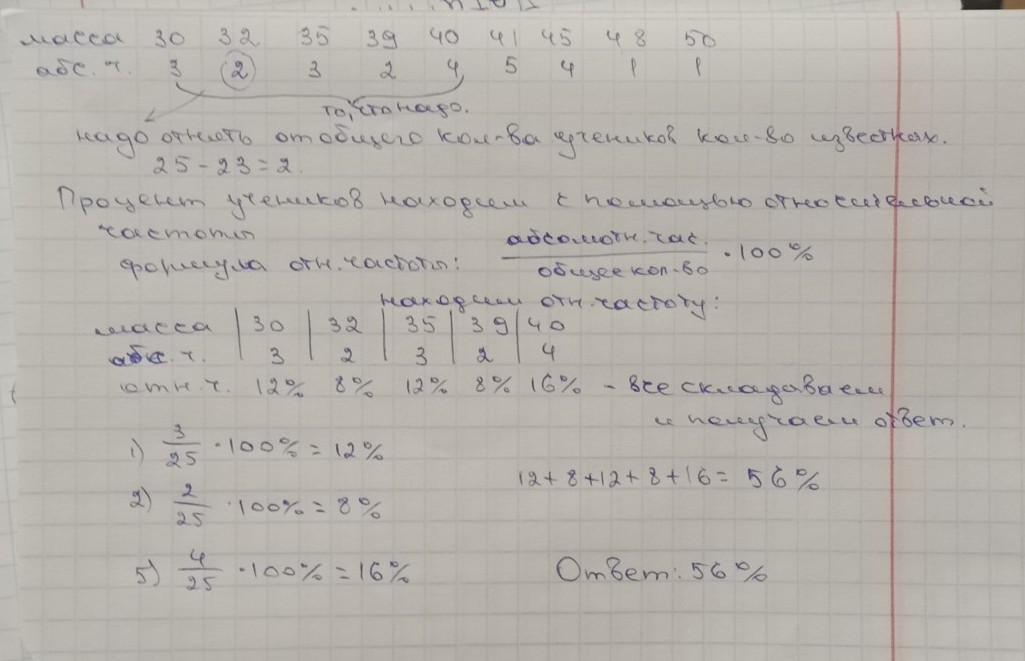 масса 30 32 35 39 40 41 45 48 50
абс. ч. 3 2 3 2 4 5 4 1 1
то, что надо.
надо отнять от общего кол-ва учеников кол-во известных.
25 - 23 = 2.
Процент учеников находим с помощью относительной
частоты
формула отн. частоты: абсолютн. час. / общее кол-во · 100%
находим отн. частоту:
масса | 30 | 32 | 35 | 39 | 40
абс. ч. | 3 | 2 | 3 | 2 | 4
отн. ч. 12% 8% 12% 8% 16% - все складываем
и получаем ответ.
1) 3/25 · 100% = 12%
12 + 8 + 12 + 8 + 16 = 56%
2) 2/25 · 100% = 8%
5) 4/25 · 100% = 16%
Ответ: 56%